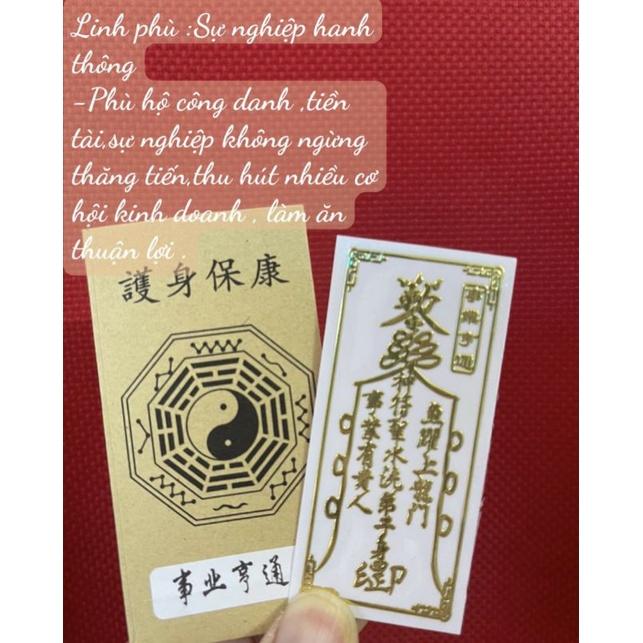 Linh phù :Sự nghiệp hanh
thông
-Phù hộ công danh ,tiền
tài,sự nghiệp không ngừng
thăng tiến,thu hút nhiều cơ
hội kinh doanh , làm ăn
thuận lợi .
護身保康
事业亨通
事業亨通
魚躍上龍門
神符聖水洗弟子身
事業有貴人